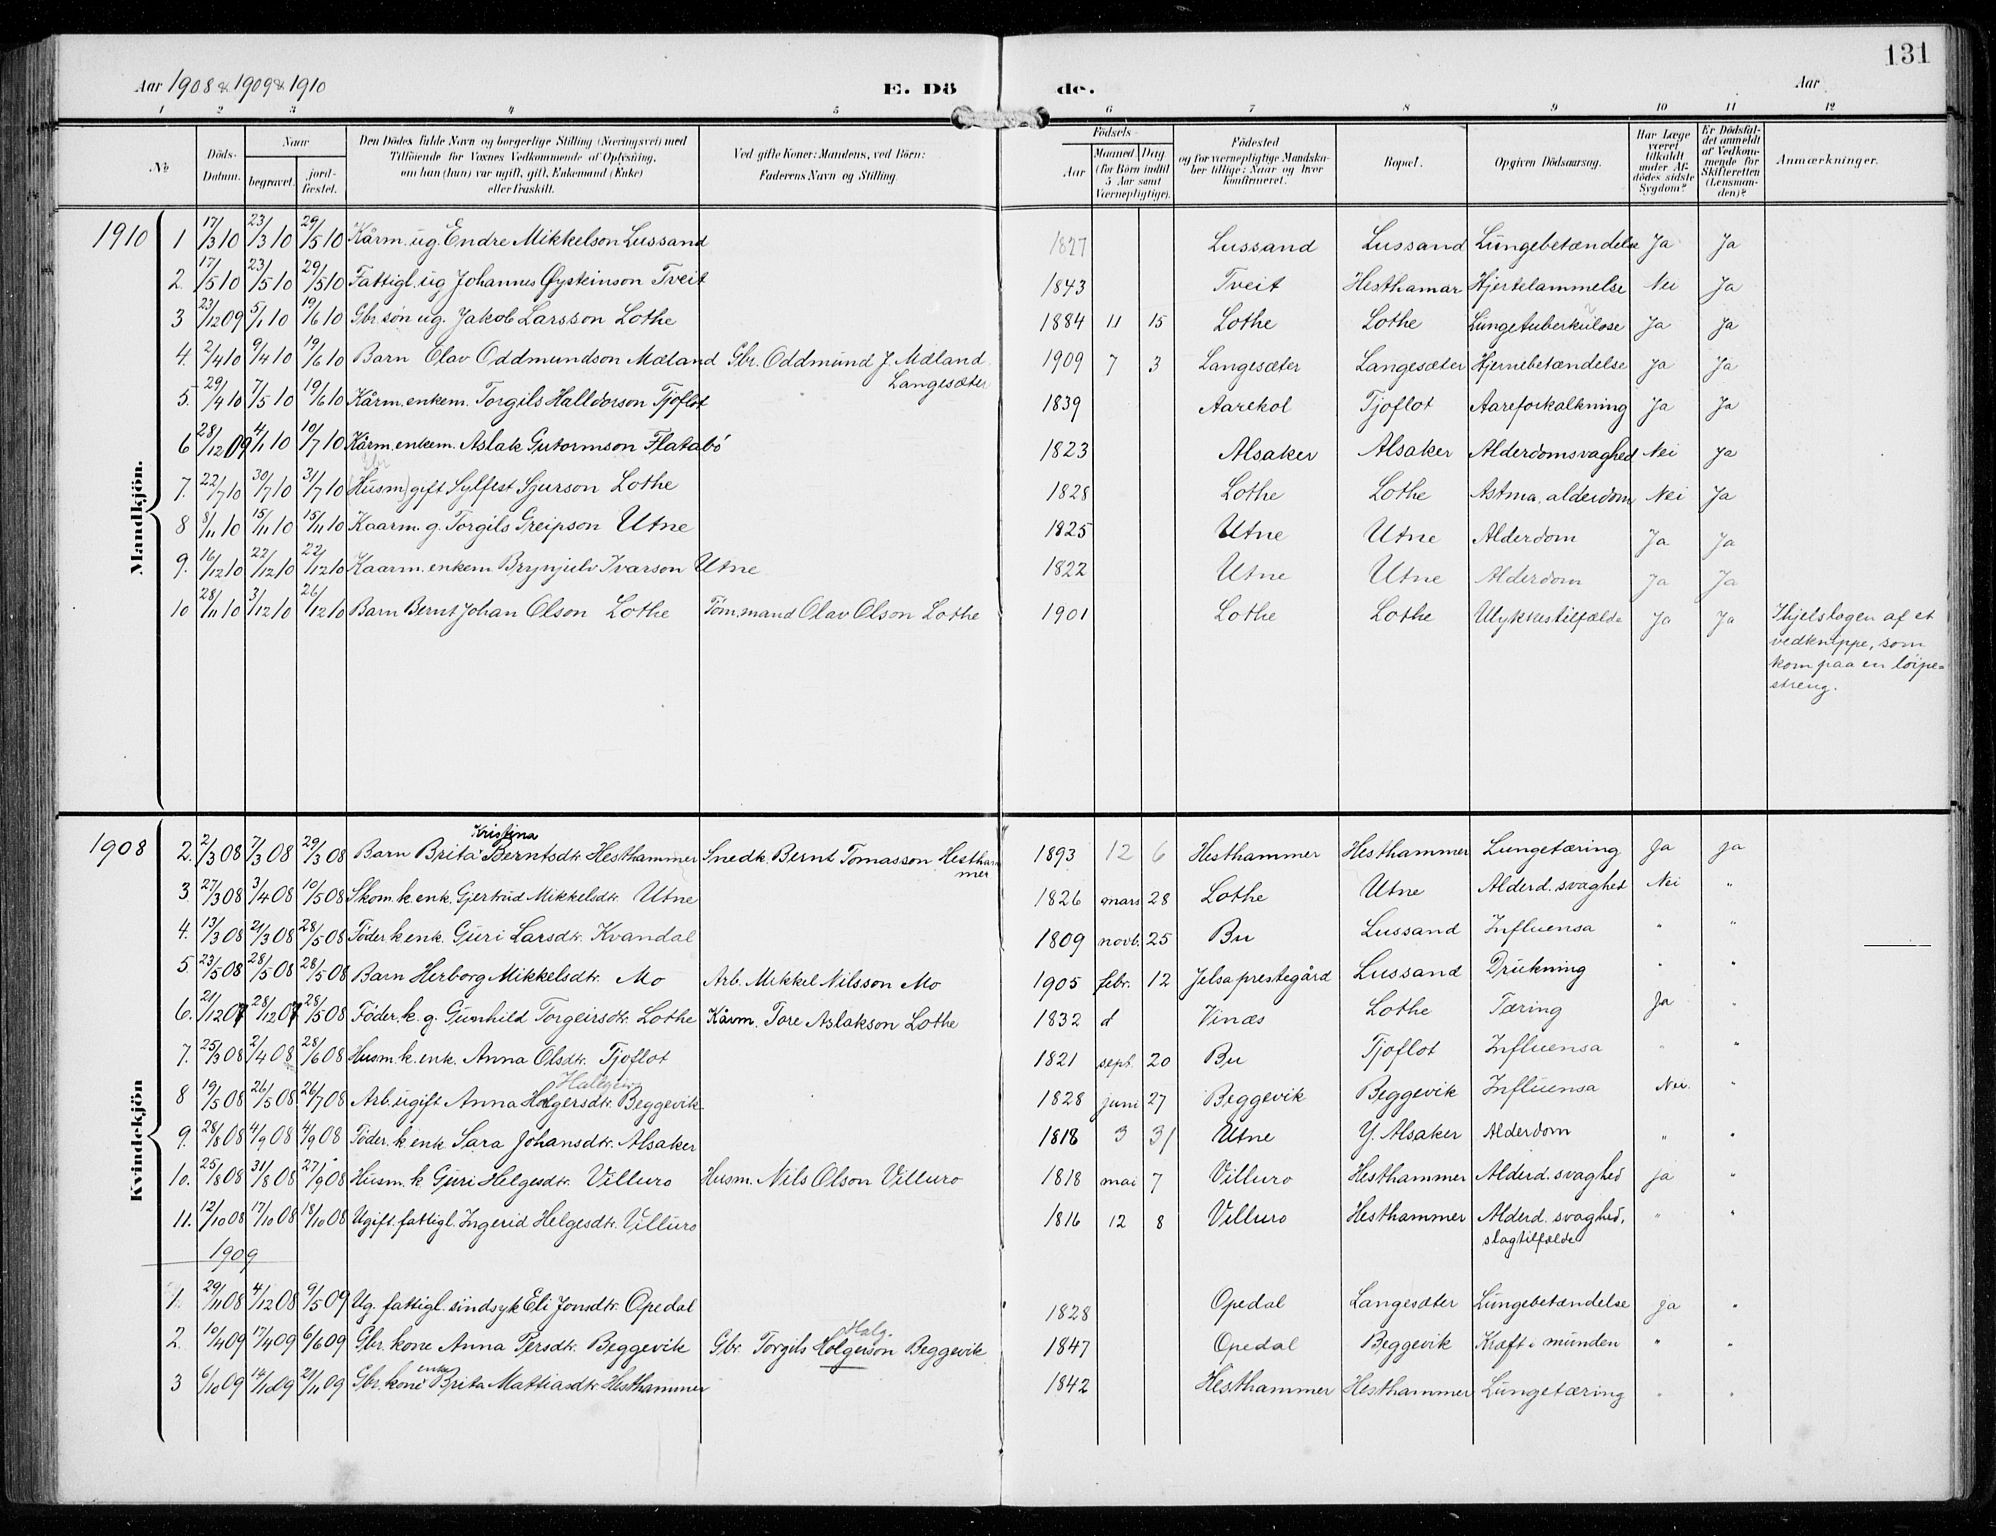 131
Aar 1908 & 1909 & 1910 E. Dö de. Aar
1 2 3 4 5 6 7 8 9 10 11 12
No
Döds-Datum.
Naar
begravet.
jord-fæstet.
Den Dödes fulde Navn og borgerlige Stilling (Næringsvei) med
Tilföiende for Voxnes Vedkommende af Oplysning,
om han (hun) var ugift, gift, Enkemand (Enke)
eller fraskilt.
Ved gifte Koner: Mandens, ved Börn:
Faderens Navn og Stilling.
Födsels-
Aar
Maaned Dag
(for Börn indtil
5 Aar samt
Værnepligtige).
Födested
og for værnepligtige Mandska-
ber tillige: Naar og hvor
konfirmeret.
Bopæl.
Opgiven Dödsaarsag.
Har Læge
været
tilkaldt
under Af-
dödes sidste
Sygdom?
Er Dödsfal-
det anmeldt
af Vedkom-
mende for
Skifteretten
(Lensman-
den)?
Anmærkninger.
Mandkjön.
1910 1 17/3 10 23/3 10 29/5 10 Kårm. ug. Endre Mikkelson Lussand 1827 Lussand Lussand Lungebetændelse Ja Ja
2. 17/5 10 23/5 10 29/5 10 Fattigl. ug Johannes Øysteinson Tveit 1843 Tveit Hesthamar Hjertelammelse Nei Ja
3 23/12 09 5/1 10 19/6 10 Gbr. søn ug. Jakob Larsson Lothe 1884 11 15 Lothe Lothe Lungetuberkulose Ja Ja
4. 2/4 10 9/4 10 19/6 10 Barn Olav Oddmundson Mæland Gbr. Oddmund J. Mæland 1909 7 3 Langesæter Langesæter Hjernebetændelse Ja Ja
Langesæter
5. 29/4 10 7/5 10 19/6 10 Kårm. enkem. Torgils Halldorson Tjoflot 1839 Aarekol Tjoflot Aareforkalkning Ja Ja
6 28/12 09 4/1 10 10/7 10 Kårm. enkem. Aslak Gutormson Flatabö 1823 Alsaker Alsaker Alderdomsvaghed Nei Ja
7. 22/7 10 30/7 10 31/7 10 (Husm) gift Sylfest Sjurson Lothe 1828 Lothe Lothe Astma, alderdom Nei Ja
8 8/11 10 15/11 10 15/11 10 Kaarm. g. Torgils Greipson Utne 1825 Utne Utne Alderdom Ja Ja
9. 16/12 10 22/12 10 22/12 10 Kaarm. enkem. Brynjulv Ivarson Utne 1822 Utne Utne Alderdom Ja Ja
10 28/11 10 3/12 10 26/12 10 Barn Bernt Johan Olson Lothe Töm. mand Olav Olson Lothe 1901 Lothe Lothe Ulykkestilfælde Ja Ja Ihjelslagen af et
vedknippe, som
kom paa en löipe-
streng.
Kvindekjön
Kristina
1908 2. 2/3 08 7/3 08 29/3 08 Barn Brita Berntsdtr. Hesthammer Snedk. Bernt Tomasson Hestham 1893 12 6 Hesthammer Hesthammer Lungetæring Ja ja
mer
3 27/3 08 3/4 08 10/5 08 Skom. k. enk. Gjertrud Mikkelsdtr. Utne 1826 mars 28 Lothe Utne Alderd. svaghet Nei "
4. 13/3 08 21/3 08 28/5 08 Föder. k enk. Guri Larsdtr. Kvandal 1809 novb. 25 Bu Lussand Influensa " "
5. 23/5 08 28/5 08 28/5 08 Barn Herborg Mikkelsdtr. Mo Arb. Mikkel Nilsson Mo 1905 febr. 12 Jelsa prestegård Lussand Drukning " "
6. 21/12 07 28/12 07 28/5 08 Föder. k. g. Gunhild Torgeirsdtr. Lothe Kårm. Tore Aslakson Lothe 1832 d Vinæs Lothe Tæring Ja "
7. 25/3 08 2/4 08 28/6 08 Husm. k. enk. Anna Olsdtr. Tjoflot 1821 sept. 20 Bu Tjoflot Influensa " "
8 19/5 08 26/5 08 26/7 08 Arb. ugift Anna Holgersdtr. Beggevik 1828 juni 27 Beggevik Beggevik Influensa Nei. "
9. 28/8 08 4/9 08 4/9 08 Föder. k enk Sara Johansdtr. Alsaker 1818 3 31 Utne Y. Alsaker Alderdom " "
10. 25/8 08 31/8 08 27/9 08 Husm. k Guri Helgesdtr. Villuro Husm. Nils Olson Villuro 1818 mai 7 Villuro Hesthammer Alderd. svaghed ja "
11. 12/10 08 17/10 08 18/10 08 Ugift. fattigl. Ingerid Helgesdtr. Villuro 1816 12 8 Villuro Hesthammer Alderd. svaghed, " "
slagtilfælde
1909
1. 29/11 08 4/12 08 9/5 09 Ug. fattigl. sindsyk Eli Jonsdtr. Opedal 1828 Opedal Langesæter Lungebetændelse ja "
Halg.
2. 10/4 09 17/4 09 6/6 09 Gbr. kone Anna Persdtr. Beggevik Gbr. Torgils Holgerson Beggevik 1847 Opedal Beggevik Kræft i munden " "
enke
3 6/10 09 14/10 09 21/11 09 Gbr. kone Brita Mattiasdtr. Hesthammer 1842 Hesthammer Hesthammer Lungetæring " "